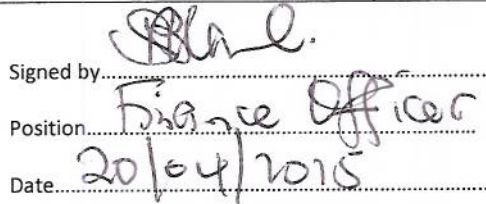 Signed by
Position Finance Officer
Date 20/04/2015